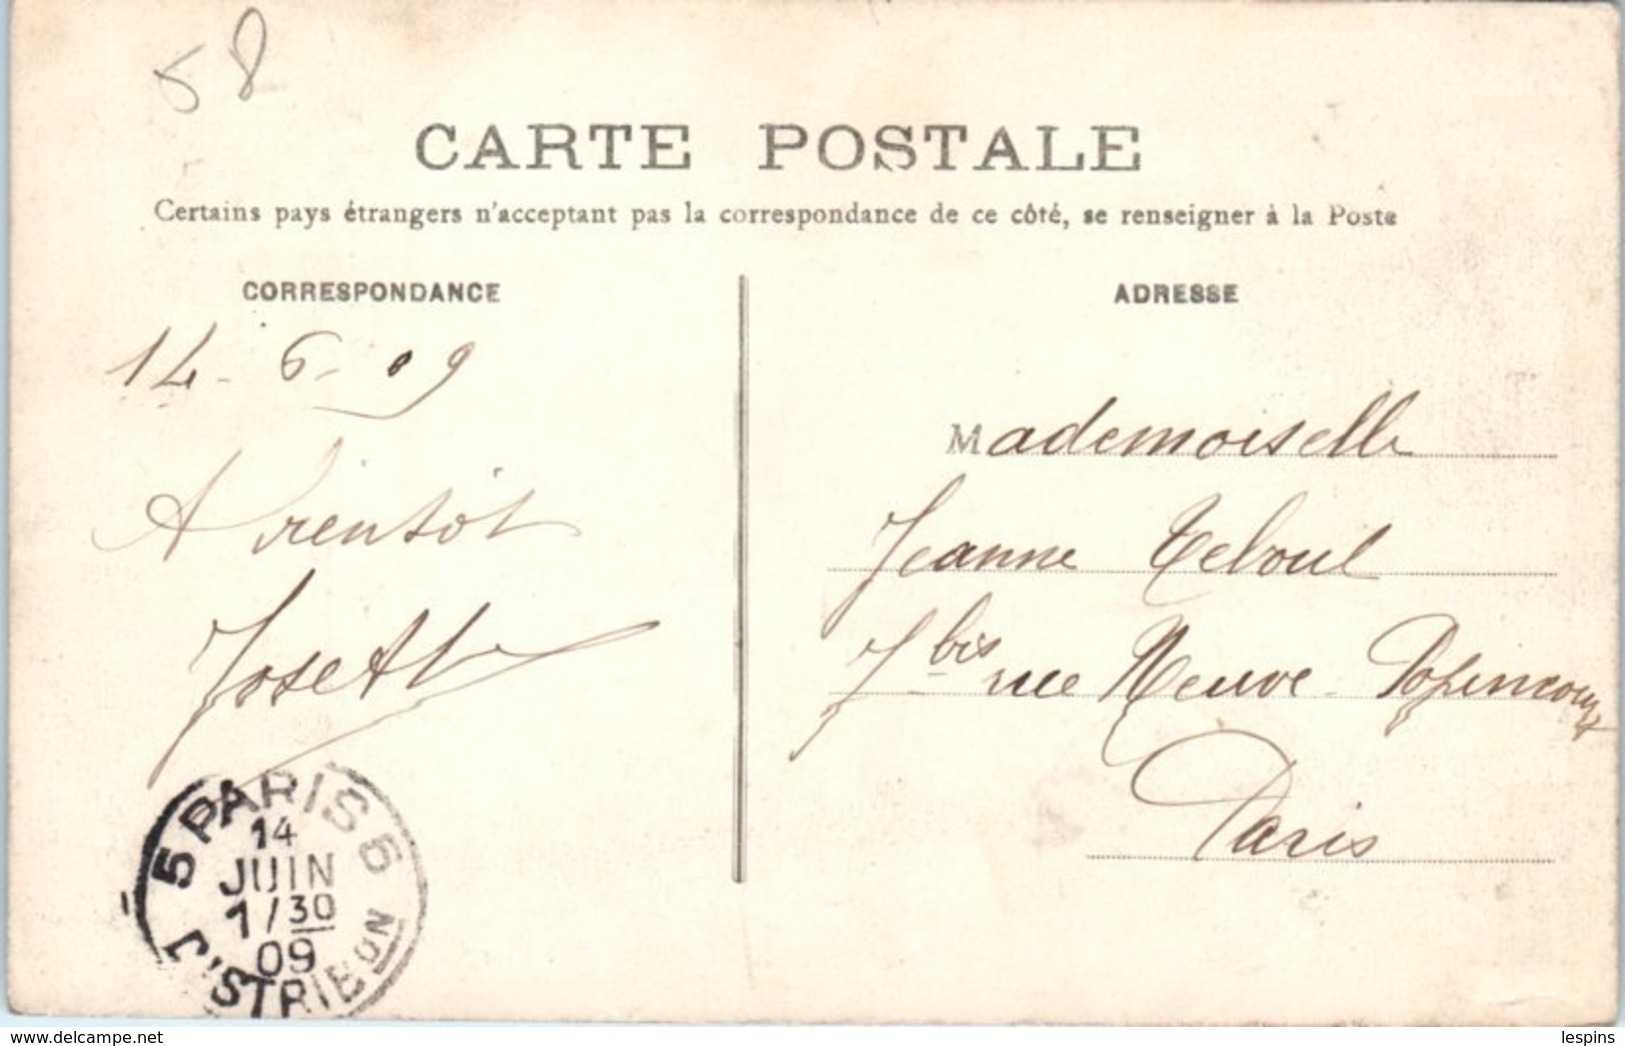 58
CARTE POSTALE
Certains pays étrangers n'acceptant pas la correspondance de ce côté, se renseigner à la Poste
CORRESPONDANCE
14 - 6 - 09
A Bientôt
Josette
ADRESSE
Mademoiselle
Jeanne Teboul
7 bis rue Neuve Popincourt
Paris
5 PARIS 5
14
JUIN
7/30
09
DISTRIBON
www.delcampe.net
lespins